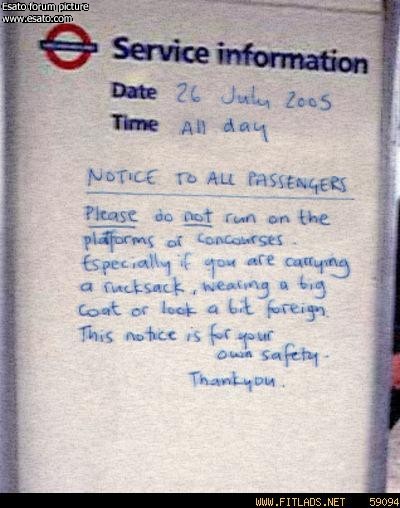 Esato forum picture
www.esato.com
Service information
Date 26 July 2005
Time All day
NOTICE TO ALL PASSENGERS
Please do not run on the
platforms or concourses.
Especially if you are carrying
a rucksack, wearing a big
coat or look a bit foreign.
This notice is for your
own safety.
Thankyou.
WWW.FITLADS.NET 59094